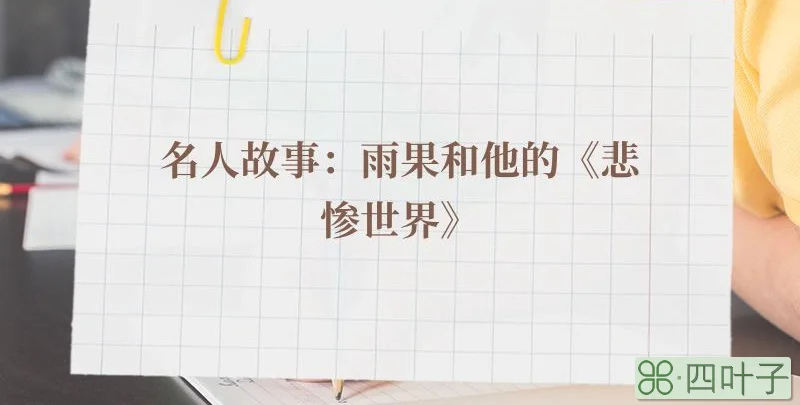 名人故事：雨果和他的《悲
惨世界》
四叶子